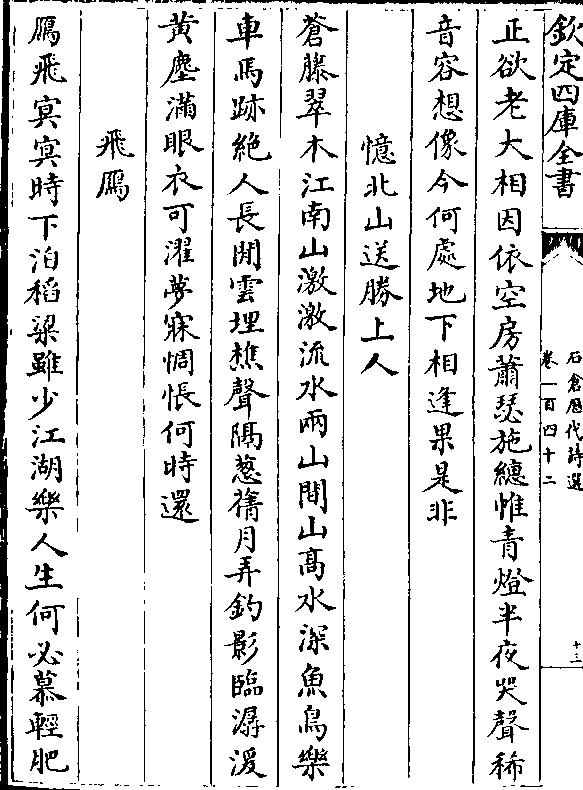 欽定四庫全書
石倉歴代詩選
卷一百四十二
十三
正欲老大相因依空房蕭瑟施繐帷青燈半夜哭聲稀
音容想像今何處地下相逢果是非
憶北山送勝上人
蒼藤翠木江南山激激流水兩山間山髙水深魚鳥樂
車馬跡絶人長閒雲埋樵聲隔葱蒨月弄釣影臨潺湲
黄塵滿眼衣可濯夢寐惆悵何時還
飛鴈
鴈飛冥冥時下泊稻粱雖少江湖樂人生何必慕輕肥